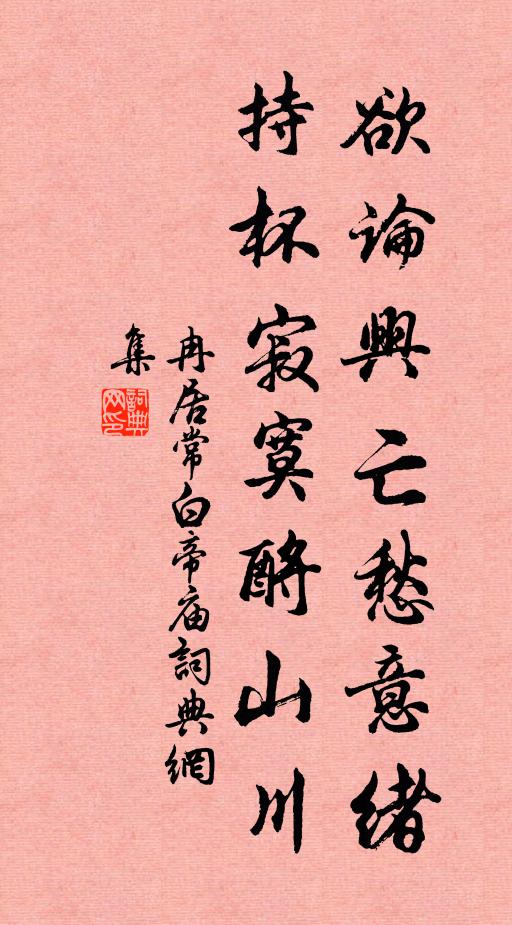 欲論興亡愁意緒
持杯寂寞酹山川
冉居常白帝庙詞典網
集
詞典网印